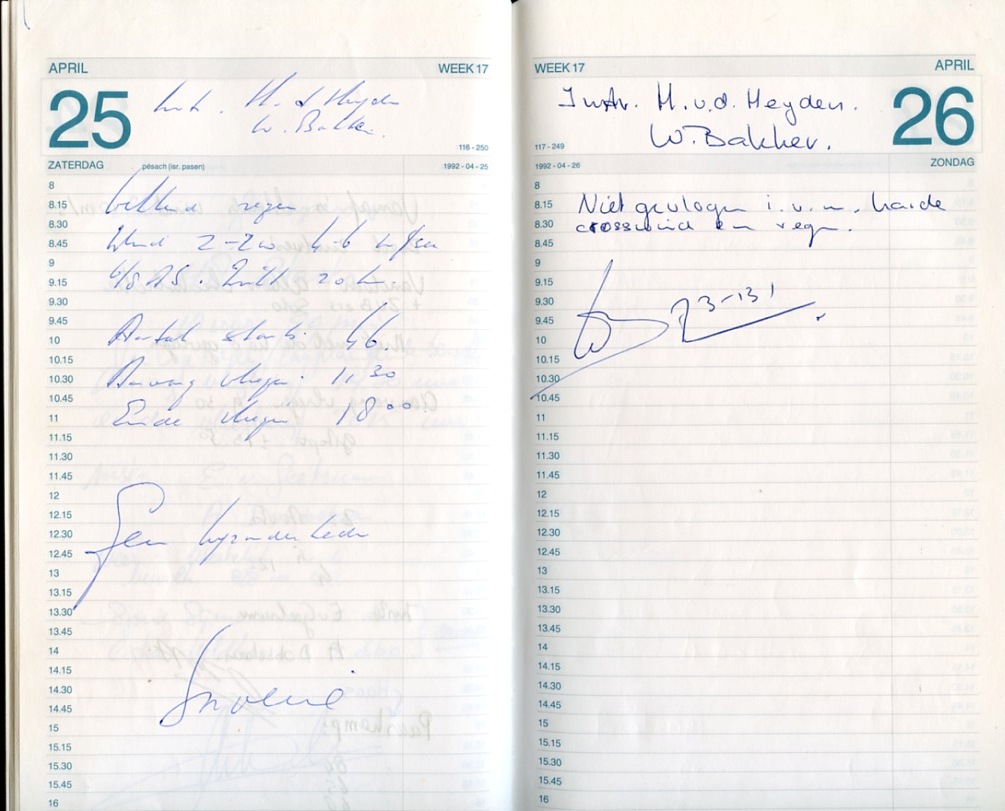 APRIL WEEK 17
25
Inst. H. v d Heyden
W. Bakker.
116 - 250
ZATERDAG pésach (isr. pasen) 1992 - 04 - 25
8
8.15 regen
8.30 Wind 2-Zw 4-6 m/sec
8.45
9
9.15 20
9.30
9.45 Aantal starts: 46.
10
10.15
10.30 Aanvang vliegen: 11.30
10.45
11 Einde vliegen 18 00
11.15
11.30
11.45
12
12.15
12.30 Geen bijzonderheden
12.45
13
13.15
13.30
13.45
14
14.15
14.30
14.45
15
15.15
15.30
15.45
16
WEEK 17 APRIL
26
Instr. H. v.d. Heyden.
W. Bakker.
117 - 249
1992 - 04 - 26 ZONDAG
8
8.15 Niet gevlogen i.v.m. harde
8.30 crosswind en regen.
8.45
9
9.15
9.30 23-131
9.45
10
10.15
10.30
10.45
11
11.15
11.30
11.45
12
12.15
12.30
12.45
13
13.15
13.30
13.45
14
14.15
14.30
14.45
15
15.15
15.30
15.45
16